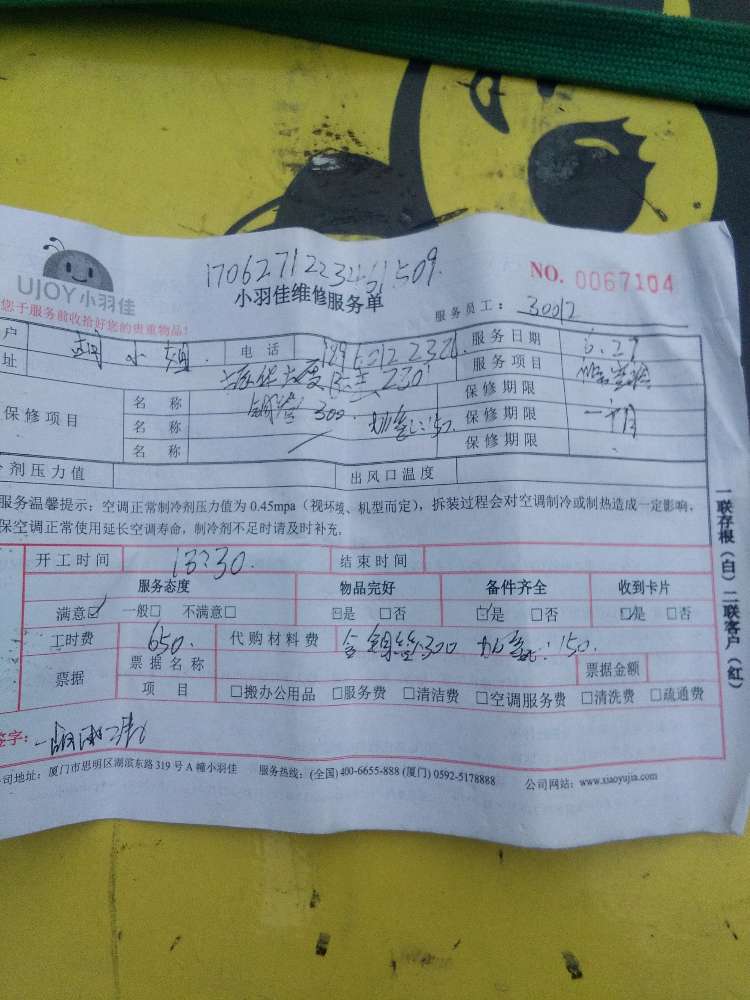 UJOY小羽佳
小羽佳维修服务单
NO. 0067104
您于服务前收拾好您的贵重物品!
服务员工: 30012
户 小姐 电话 服务日期 6.29
址 服务项目
保修项目 名 称 铜管 300 保修期限
名 称 加氟:150. 保修期限 一个月
名 称 保修期限
剂压力值 出风口温度
服务温馨提示: 空调正常制冷剂压力值为 0.45mpa (视环境、机型而定), 拆装过程会对空调制冷或制热造成一定影响,
保空调正常使用延长空调寿命, 制冷剂不足时请及时补充.
开工时间 13:30. 结束时间
服务态度 物品完好 备件齐全 收到卡片
满意☑ 一般□ 不满意□ ☑是 □否 ☑是 □否 ☑是 □否
工时费 650. 代购材料费 含铜管300 加氟:150.
票据 票据名称 票据金额
项 目 □搬办公用品 □服务费 □清洁费 □空调服务费 □清洗费 □疏通费
签字:
司地址: 厦门市思明区湖滨东路 319 号 A 幢小羽佳 服务热线: (全国) 400-6655-888 (厦门) 0592-5178888 公司网站: www.xiaoyujia.com
一联存根(白) 二联客户(红)